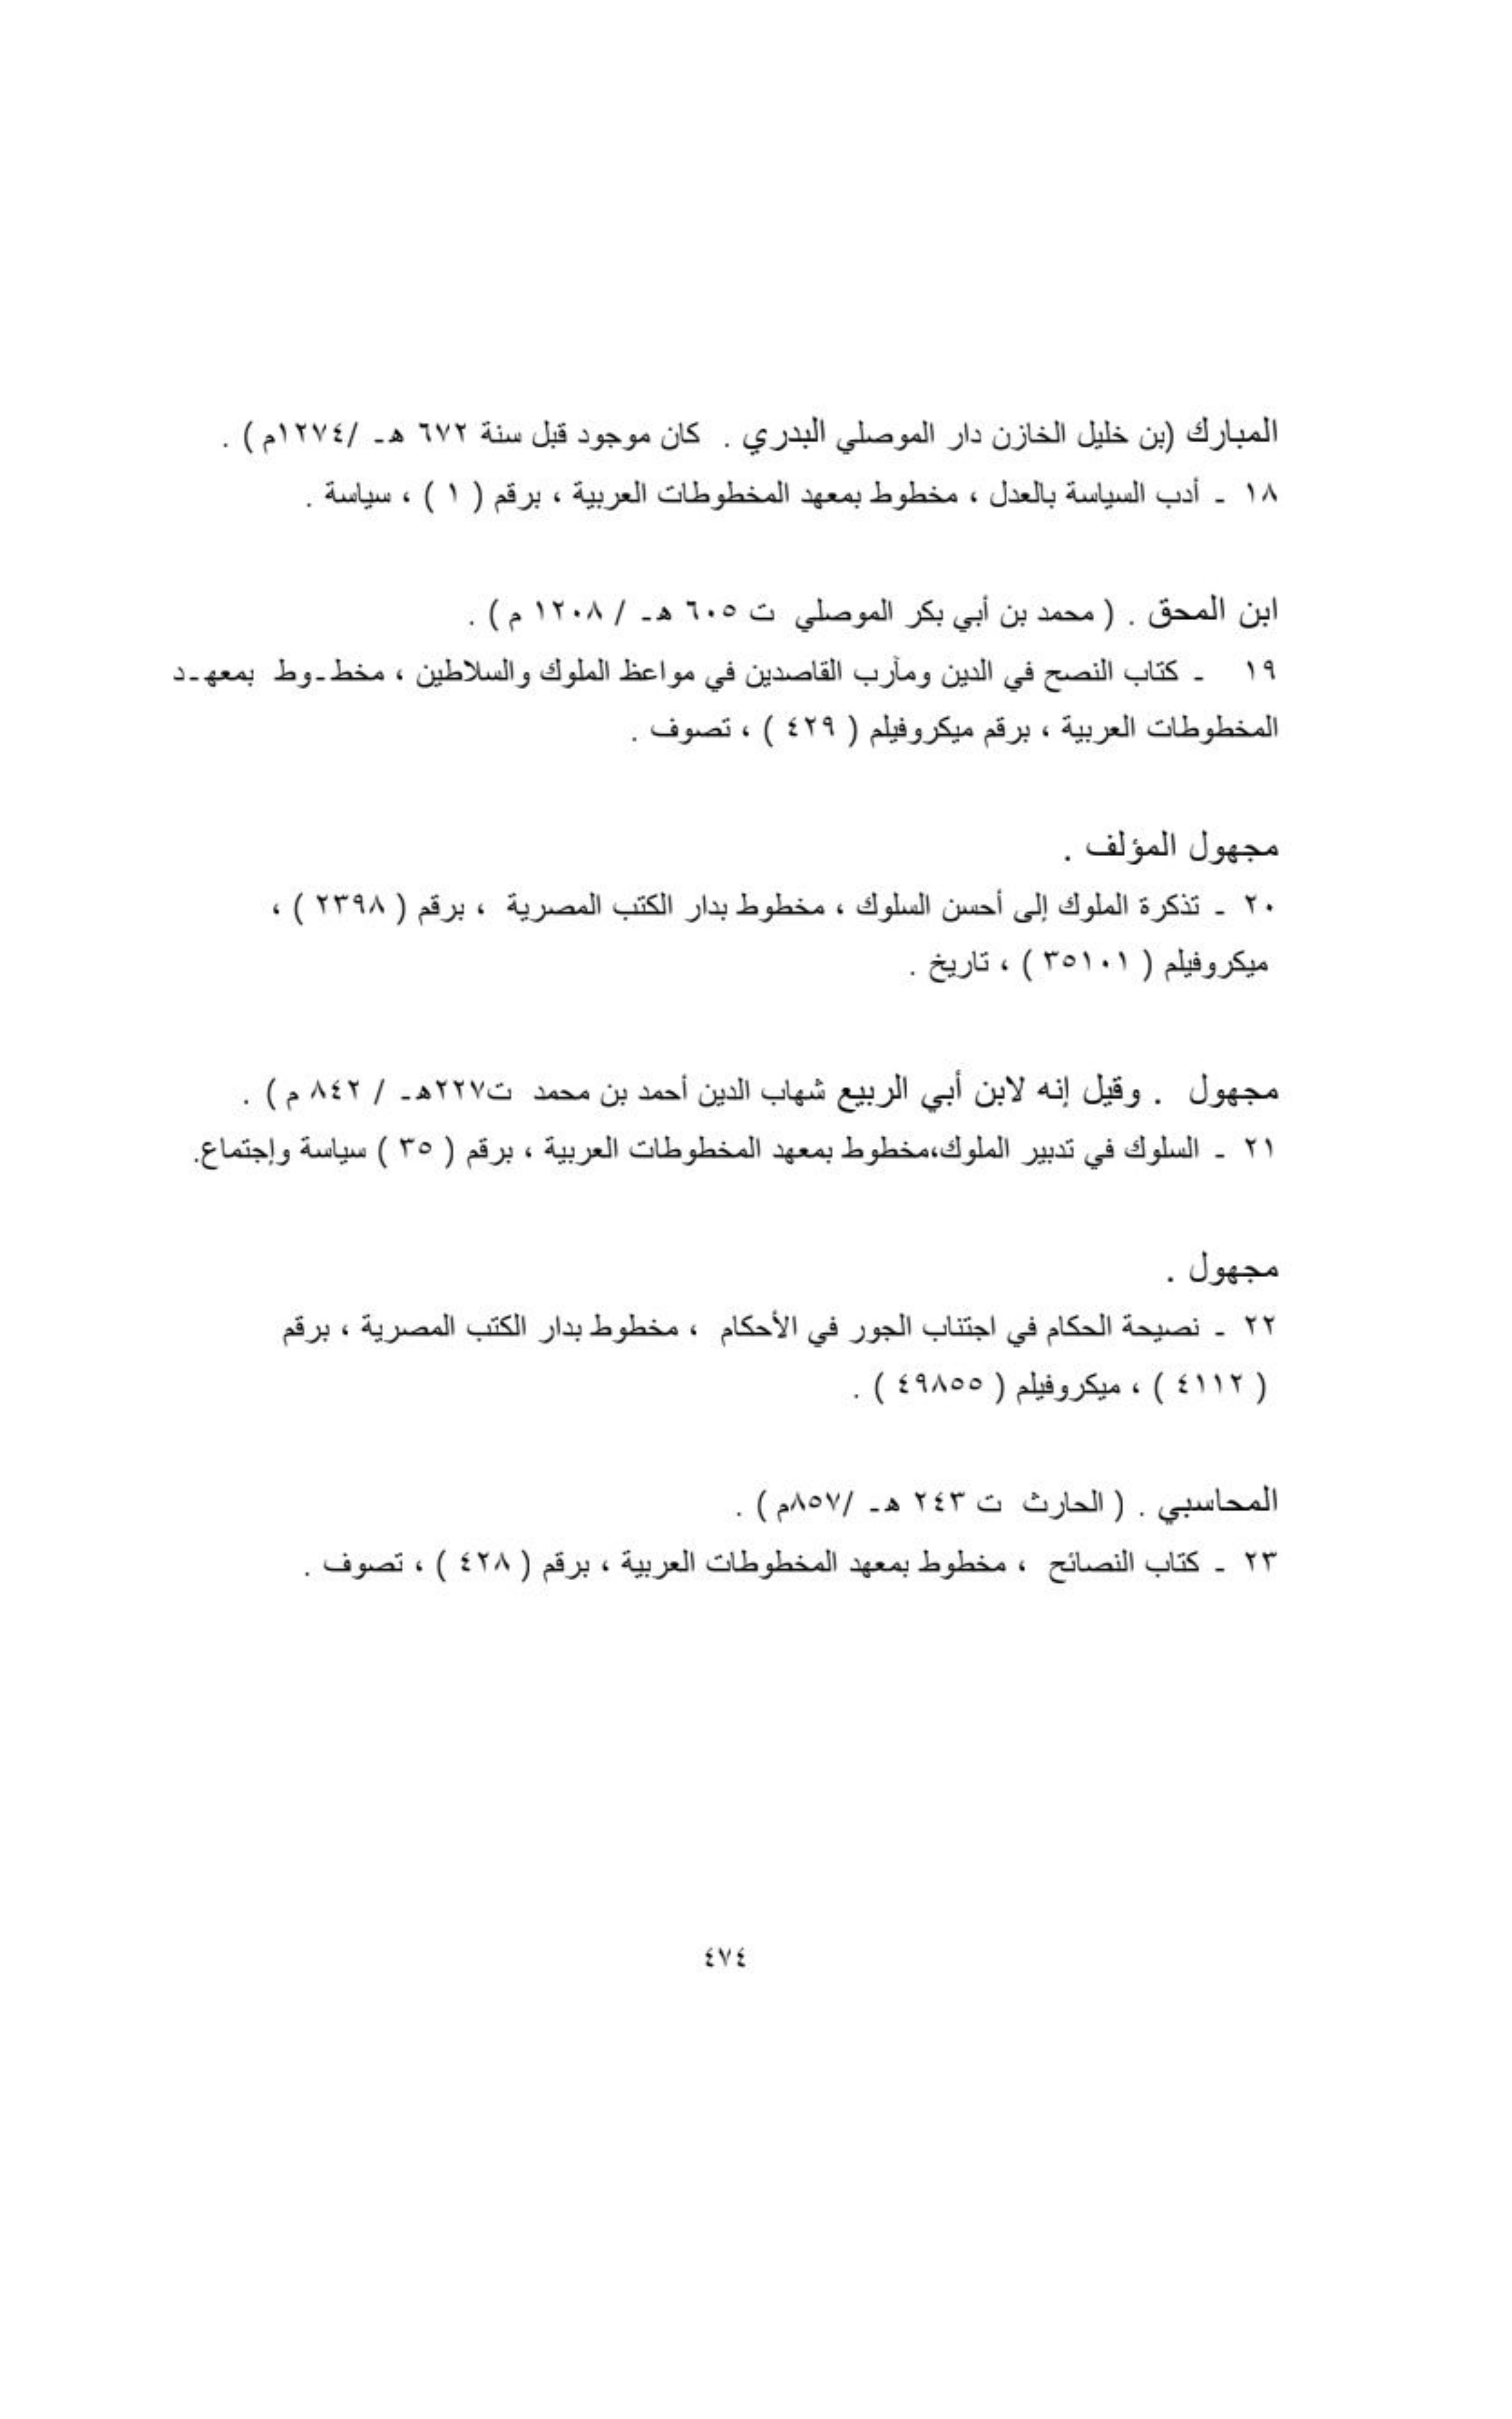 المبارك (بن خليل الخازن دار الموصلي البدري . كان موجود قبل سنة ٦٧٢ هـ /١٢٧٤م ) .
١٨ ـ أدب السياسة بالعدل ، مخطوط بمعهد المخطوطات العربية ، برقم ( ١ ) ، سياسة .
ابن المحق . ( محمد بن أبي بكر الموصلي ت ٦٠٥ هـ / ١٢٠٨ م ) .
١٩ ـ كتاب النصح في الدين ومآرب القاصدين في مواعظ الملوك والسلاطين ، مخطـوط بمعهـد
المخطوطات العربية ، برقم ميكروفيلم ( ٤٢٩ ) ، تصوف .
مجهول المؤلف .
٢٠ ـ تذكرة الملوك إلى أحسن السلوك ، مخطوط بدار الكتب المصرية ، برقم ( ٢٣٩٨ ) ،
ميكروفيلم ( ٣٥١٠١ ) ، تاريخ .
مجهول . وقيل إنه لابن أبي الربيع شهاب الدين أحمد بن محمد ت٢٢٧هـ / ٨٤٢ م ) .
٢١ ـ السلوك في تدبير الملوك،مخطوط بمعهد المخطوطات العربية ، برقم ( ٣٥ ) سياسة وإجتماع.
مجهول .
٢٢ ـ نصيحة الحكام في اجتناب الجور في الأحكام ، مخطوط بدار الكتب المصرية ، برقم
( ٤١١٢ ) ، ميكروفيلم ( ٤٩٨٥٥ ) .
المحاسبي . ( الحارث ت ٢٤٣ هـ /٨٥٧م ) .
٢٣ ـ كتاب النصائح ، مخطوط بمعهد المخطوطات العربية ، برقم ( ٤٢٨ ) ، تصوف .
٤٧٤